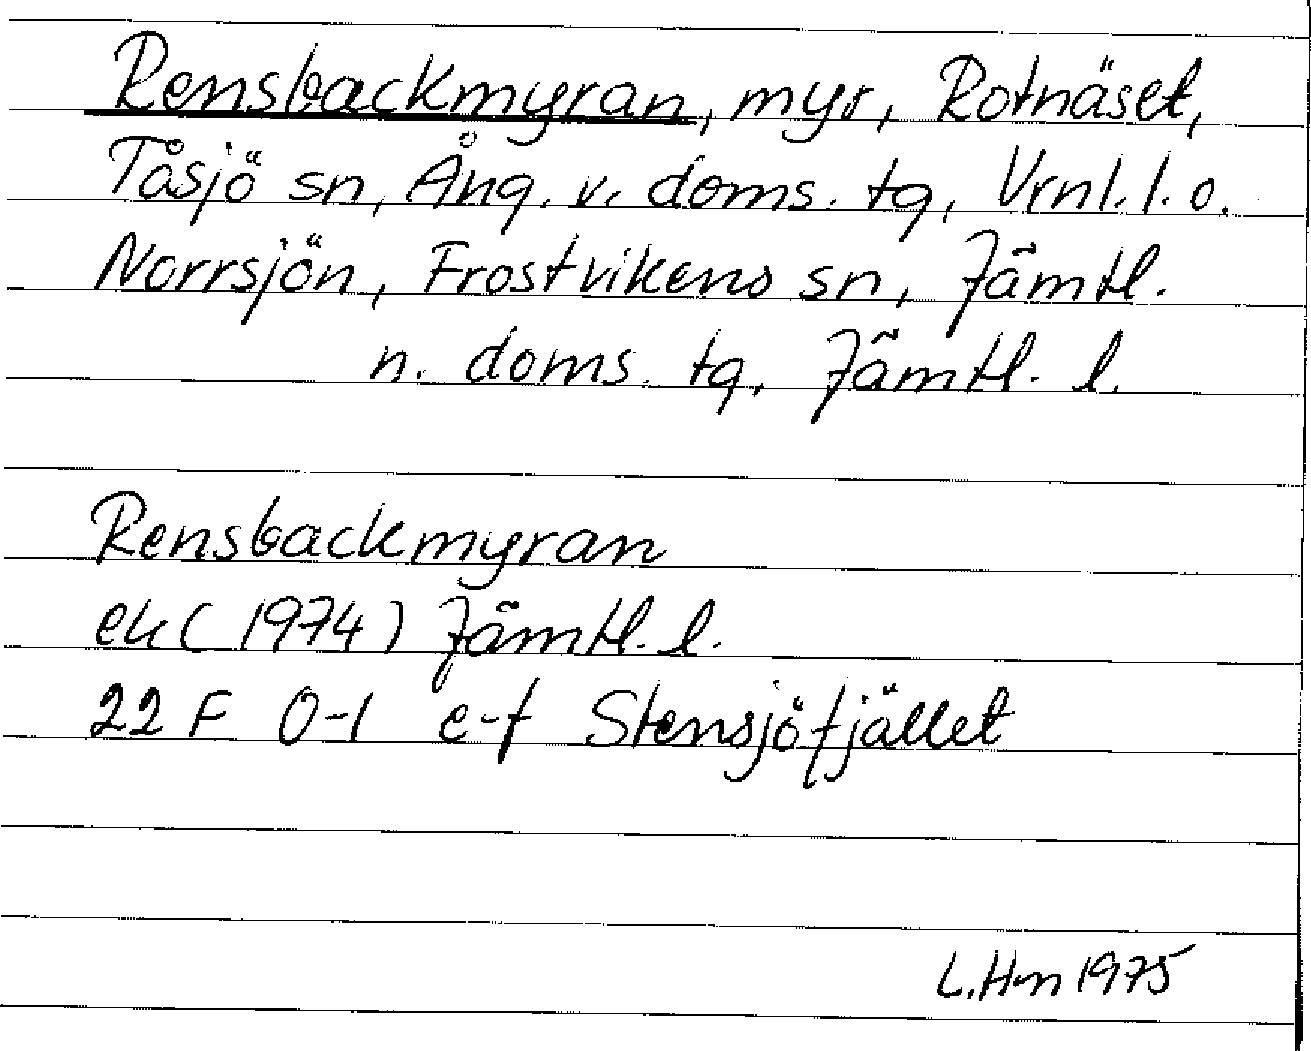 Rensbackmyran, myr, Rotnäset,
Tåsjö sn, Ång. v. doms. tg, Vrnl. l. o.
Norrsjön, Frostvikens sn, Jämtl.
n. doms. tg, Jämtl. l.
Rensbackmyran
ek (1974) Jämtl. l.
22 F 0-1 e-f Stensjöfjället
L.Hm 1975